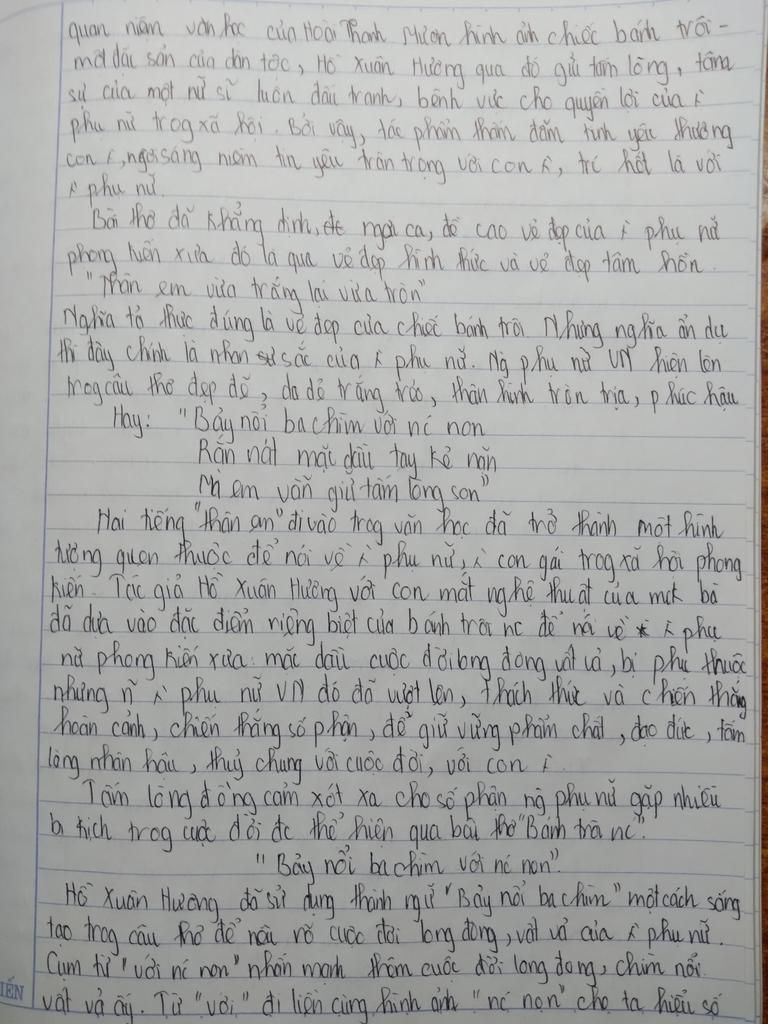 quan niệm văn học của Hoài Thanh. Mượn hình ảnh chiếc bánh trôi -
một đặc sản của dân tộc, Hồ Xuân Hương qua đó gửi tấm lòng, tâm
sự của một nữ sĩ luôn đấu tranh, bênh vực cho quyền lợi của
phụ nữ trog xã hội. Bởi vậy, tác phẩm thấm đẫm tình yêu thương
con, ngời sáng niềm tin yêu trân trọng với con, trc hết là với
phụ nữ.
Bài thơ đã khẳng định, ngợi ca, đề cao vẻ đẹp của phụ nữ
phong kiến xưa đó là qua vẻ đẹp hình thức và vẻ đẹp tâm hồn.
"Thân em vừa trắng lại vừa tròn"
Nghĩa tả thực đúng là vẻ đẹp của chiếc bánh trôi. Nhưng nghĩa ẩn dụ
thì đây chính là nhan sắc của phụ nữ. Ng phụ nữ VN hiện lên
trog câu thơ đẹp đẽ, da dẻ trắng trẻo, thân hình tròn trịa, phúc hậu
Hay: "Bảy nổi ba chìm với nc non
Rắn nát mặc dầu tay kẻ nặn
Mà em vẫn giữ tấm lòng son"
Hai tiếng "thân em" đi vào trog văn học đã trở thành một hình
tượng quen thuộc để nói về phụ nữ, con gái trog xã hội phong
kiến. Tác giả Hồ Xuân Hương với con mắt nghệ thuật của mk bà
đã dựa vào đặc điểm riêng biệt của bánh trôi nc để nói về phụ
nữ phong kiến xưa: mặc dầu cuộc đời long đong vất vả, bị phụ thuộc
nhưng phụ nữ VN đó đã vượt lên, thách thức và chiến thắng
hoàn cảnh, chiến thắng số phận, để giữ vững phẩm chất, đạo đức, tấm
lòng nhân hậu, thuỷ chung với cuộc đời, với con
Tấm lòng đồng cảm xót xa cho số phận ng phụ nữ gặp nhiều
bi kịch trog cuộc đời đc thể hiện qua bài thơ "Bánh trôi nc".
"Bảy nổi ba chìm với nc non".
Hồ Xuân Hương đã sử dụng thành ngữ "Bảy nổi ba chìm" một cách sáng
tạo trog câu thơ để nói rõ cuộc đời long đong, vất vả của phụ nữ.
Cụm từ "với nc non" nhấn mạnh thêm cuộc đời long đong, chìm nổi
vất vả ấy. Từ "với" đi liền cùng hình ảnh "nc non" cho ta hiểu số
IẾN